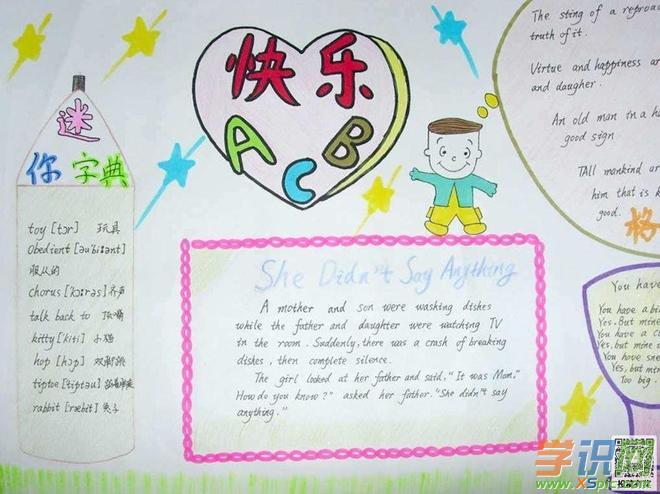 快乐
A C B
迷
你 字典
toy [tɔr] 玩具
Obedient [əu'bi:ənt]
服从的
chorus [kɔ:rəs] 齐声
talk back to 顶嘴
kitty [kiti] 小猫
hop [hɔp] 双脚跳
tiptoe [tiptəu]
rabbit [ræbit] 兔子
She Didn't Say Anything
A mother and son were washing dishes
while the father and daughter were watching TV
in the room. Suddenly, there was a crash of breaking
dishes, then complete silence.
The girl looked at her father and said, "It was Mom."
How do you know?" asked her father. "She didn't say
anything."
The sting of a reproa
truth of it.
Virtue and happiness ar
and daugher.
An old man in a h
good sign
TAll mankind ar
him that is k
good.
格
You have
You have a bi
Yes. But mine
You have a
Yes, but mine
You have sne
Yes, but min
Too big.
学识网
www.XSpic.com